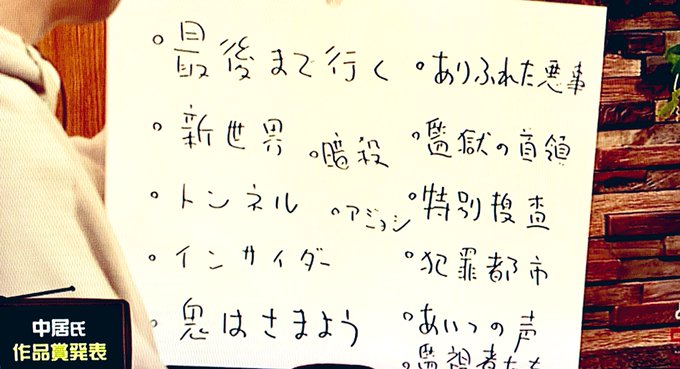 最後まで行く
ありふれた悪事
新世界
暗殺
監獄の首領
トンネル
アジョシ
特別捜査
インサイダー
犯罪都市
鬼はさまよう
あいつの声
監視者たち
中居氏
作品賞発表